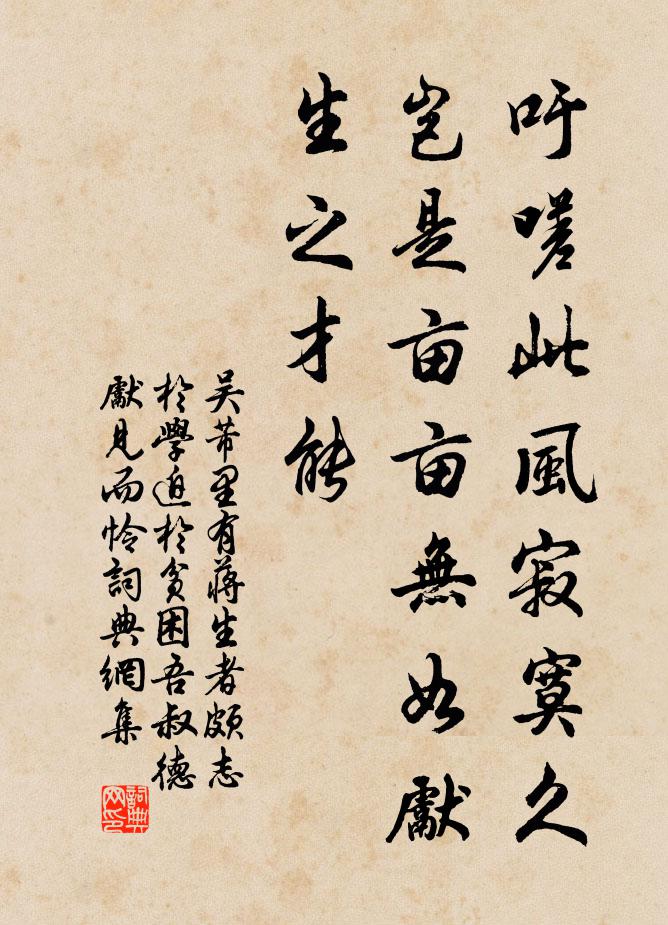 吁嗟此風寂寞久
豈是亩亩無如獻
生之才能
吴芾里有蔣生者頗志
於學迫於貧困吾叔德
獻見而怜詞典網集
詞典
网印